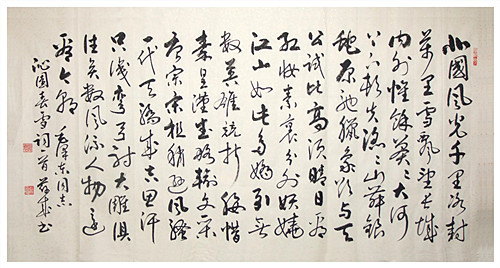 北國風光千里冰封
萬里雪飄望長城
内外惟餘莽々大河
上下頓失滔々山舞銀
蛇原馳臘象欲與天
公試比高須晴日看
紅妝素裹分外妖嬈
江山如此多嬌引無
數英雄競折腰惜
秦皇漢武略輸文采
唐宗宋祖稍遜風騷
一代天驕成吉思汗
只識彎弓射大雕俱
往矣數風流人物還
看今朝 毛澤東同志
沁園春雪詞書